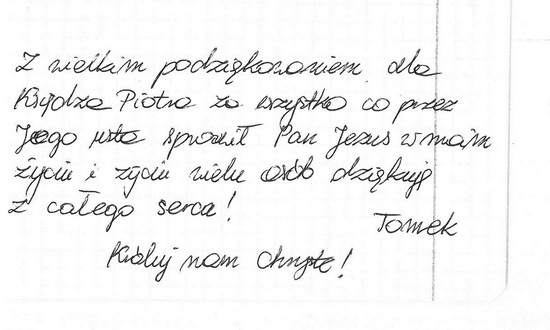 Z wielkim podziękowaniem dla
Księdza Piotra za wszystko co przez
Jego usta sprawił Pan Jezus w moim
życiu i życiu wielu osób dziękuję
z całego serca!
Tomek
Króluj nam Chryste!